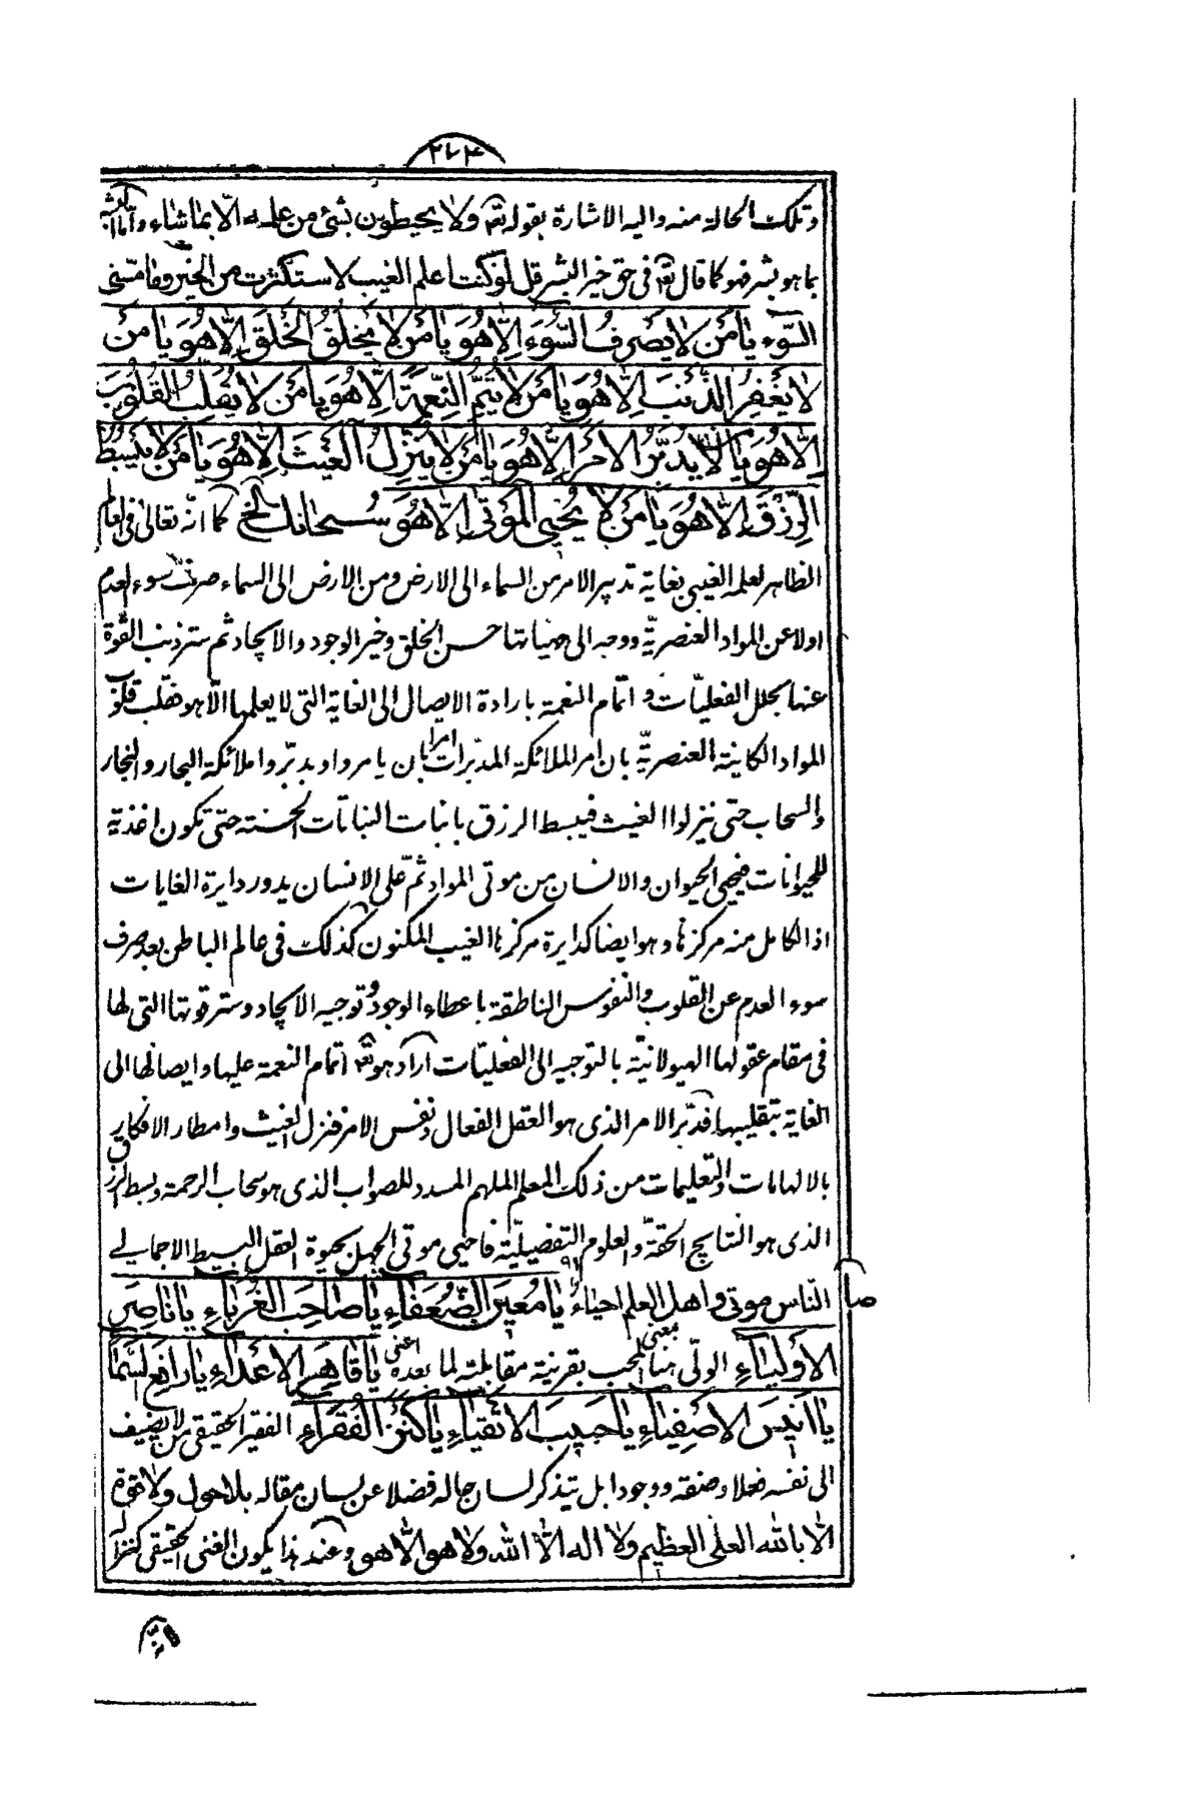 ٢٧٤
وتلك الحالة منه واليه الاشارة بقوله تع ولا يحيطون بشئ من علمه الّا بما شاء وامّا البشر
بما هو بشر فهو كما قال تع فى حق خير البشر قل لو كنت اعلم الغيب لاستكثرت من الخير وما مسّنى
السّوء يا مَن لا يَصرِفُ السّوءَ اِلّا هُوَ يا مَن لا يَخلُقُ الخَلقَ اِلّا هُوَ يا مَن
لا يَغفِرُ الذّنبَ اِلّا هُوَ يا مَن لا يُتِمُّ النِّعمَةَ اِلّا هُوَ يا مَن لا يُقَلِّبُ القُلُوبَ
اِلّا هُوَ يا مَن لا يُدَبِّرُ الاَمرَ اِلّا هُوَ يا مَن لا يُنَزِّلُ الغَيثَ اِلّا هُوَ يا مَن لا يَبسُطُ
الرِّزقَ اِلّا هُوَ يا مَن لا يُحيِى المَوتى اِلّا هُوَ سُبحانَك الخ كما انّه تعالى فى العالم
الظاهر لعلمه الغيبى بغاية تدبير الامر من السماء الى الارض ومن الارض الى السماء صرف سوء العدم
اولا عن المواد العنصريّة ووجه الى مهيّاتها حسن الخلق وخير الوجود والايجاد ثم ستر ذنب القّوة
عنها بحلل الفعليّات واتمام النعمة بارادة الايصال الى الغاية التى لا يعلمها الّا هو فقلّب قلوب
المواد الكاينة العنصريّة بان امر الملائكة المدبّرات امرا بان يامروا ويدبّروا ملائكة البحار والبخار
والسحاب حتى ينزلوا الغيث فيبسط الرزق بانبات النباتات الحسنة حتى تكون اغذية
للحيوانات فيحيى الحيوان والانسان من موتى المواد ثمّ على الانسان يدور دايرة الغايات
اذ الكامل منه مركزها وهو ايضا كدايرة مركزها الغيب المكنون كذلك فى عالم الباطن بعد صرف
سوء العدم عن القلوب والنفوس الناطقة باعطاء الوجود وتوجيه الايجاد وستر قوتها التى لها
فى مقام عقولها الهيولانيّة بالتوجيه الى الفعليّات اراد هو تع اتمام النعمة عليها وايصالها الى
الغاية بتقليبها فدبّر الامر الذى هو العقل الفعال ونفس الامر فنزل الغيث وامطار الافكار
بالالهامات والتعليمات من ذلك المعلم الملهم المسدد للصواب الذى هو سحاب الرحمة وبسط الرزق
الذى هو النتايج الحقّة والعلوم التفضيليّة فاحيى موتى الجهل بحيوة العقل البسيط الاجمالى
النّاس موتى واهل العلم احياءُ يا مُعينَ الضُّعَفاءِ يا صاحِبَ الغُرَباءِ يا ناصِرَ
صا
الاَولِياءِ الولىّ هنا معنى المحب بقرينة مقابلته لما بعده اعنى يا قاهِرَ الاَعداءِ يا رافِعَ السَّماءِ
يا اَنيسَ الاَصفِياءِ يا حَبيبَ الاَتقياءِ يا كَنزَ الفُقَراءِ الفقير الحقيقى من لا يضيف
الى نفسه فعلا وصفة ووجودا بل يتذكر لسان حاله فضلا عن لسان مقاله بلا حول ولا قوة
الّا بالله العلى العظيم ولا اله الّا الله ولا هو الّا هو وعند هذا يكون الغنى الحقيقى كنزا